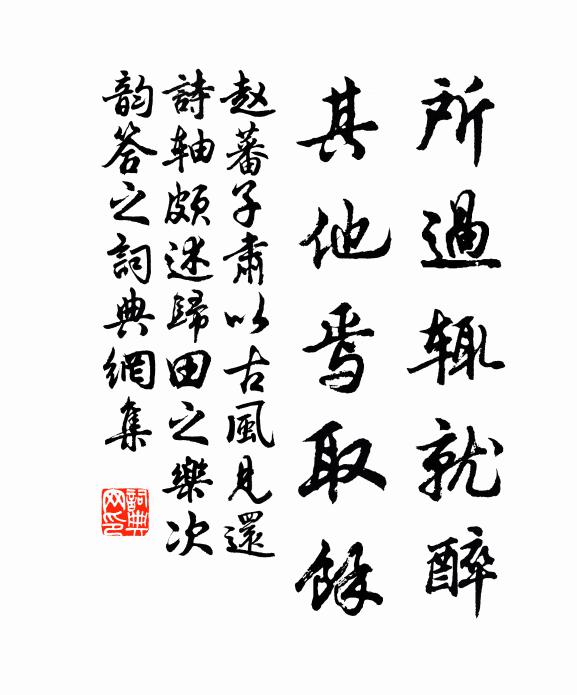 所過辄就醉
其他焉取餘
赵蕃子肅以古風見還
詩轴頗述歸田之樂次
韵答之詞典網集
詞典网印